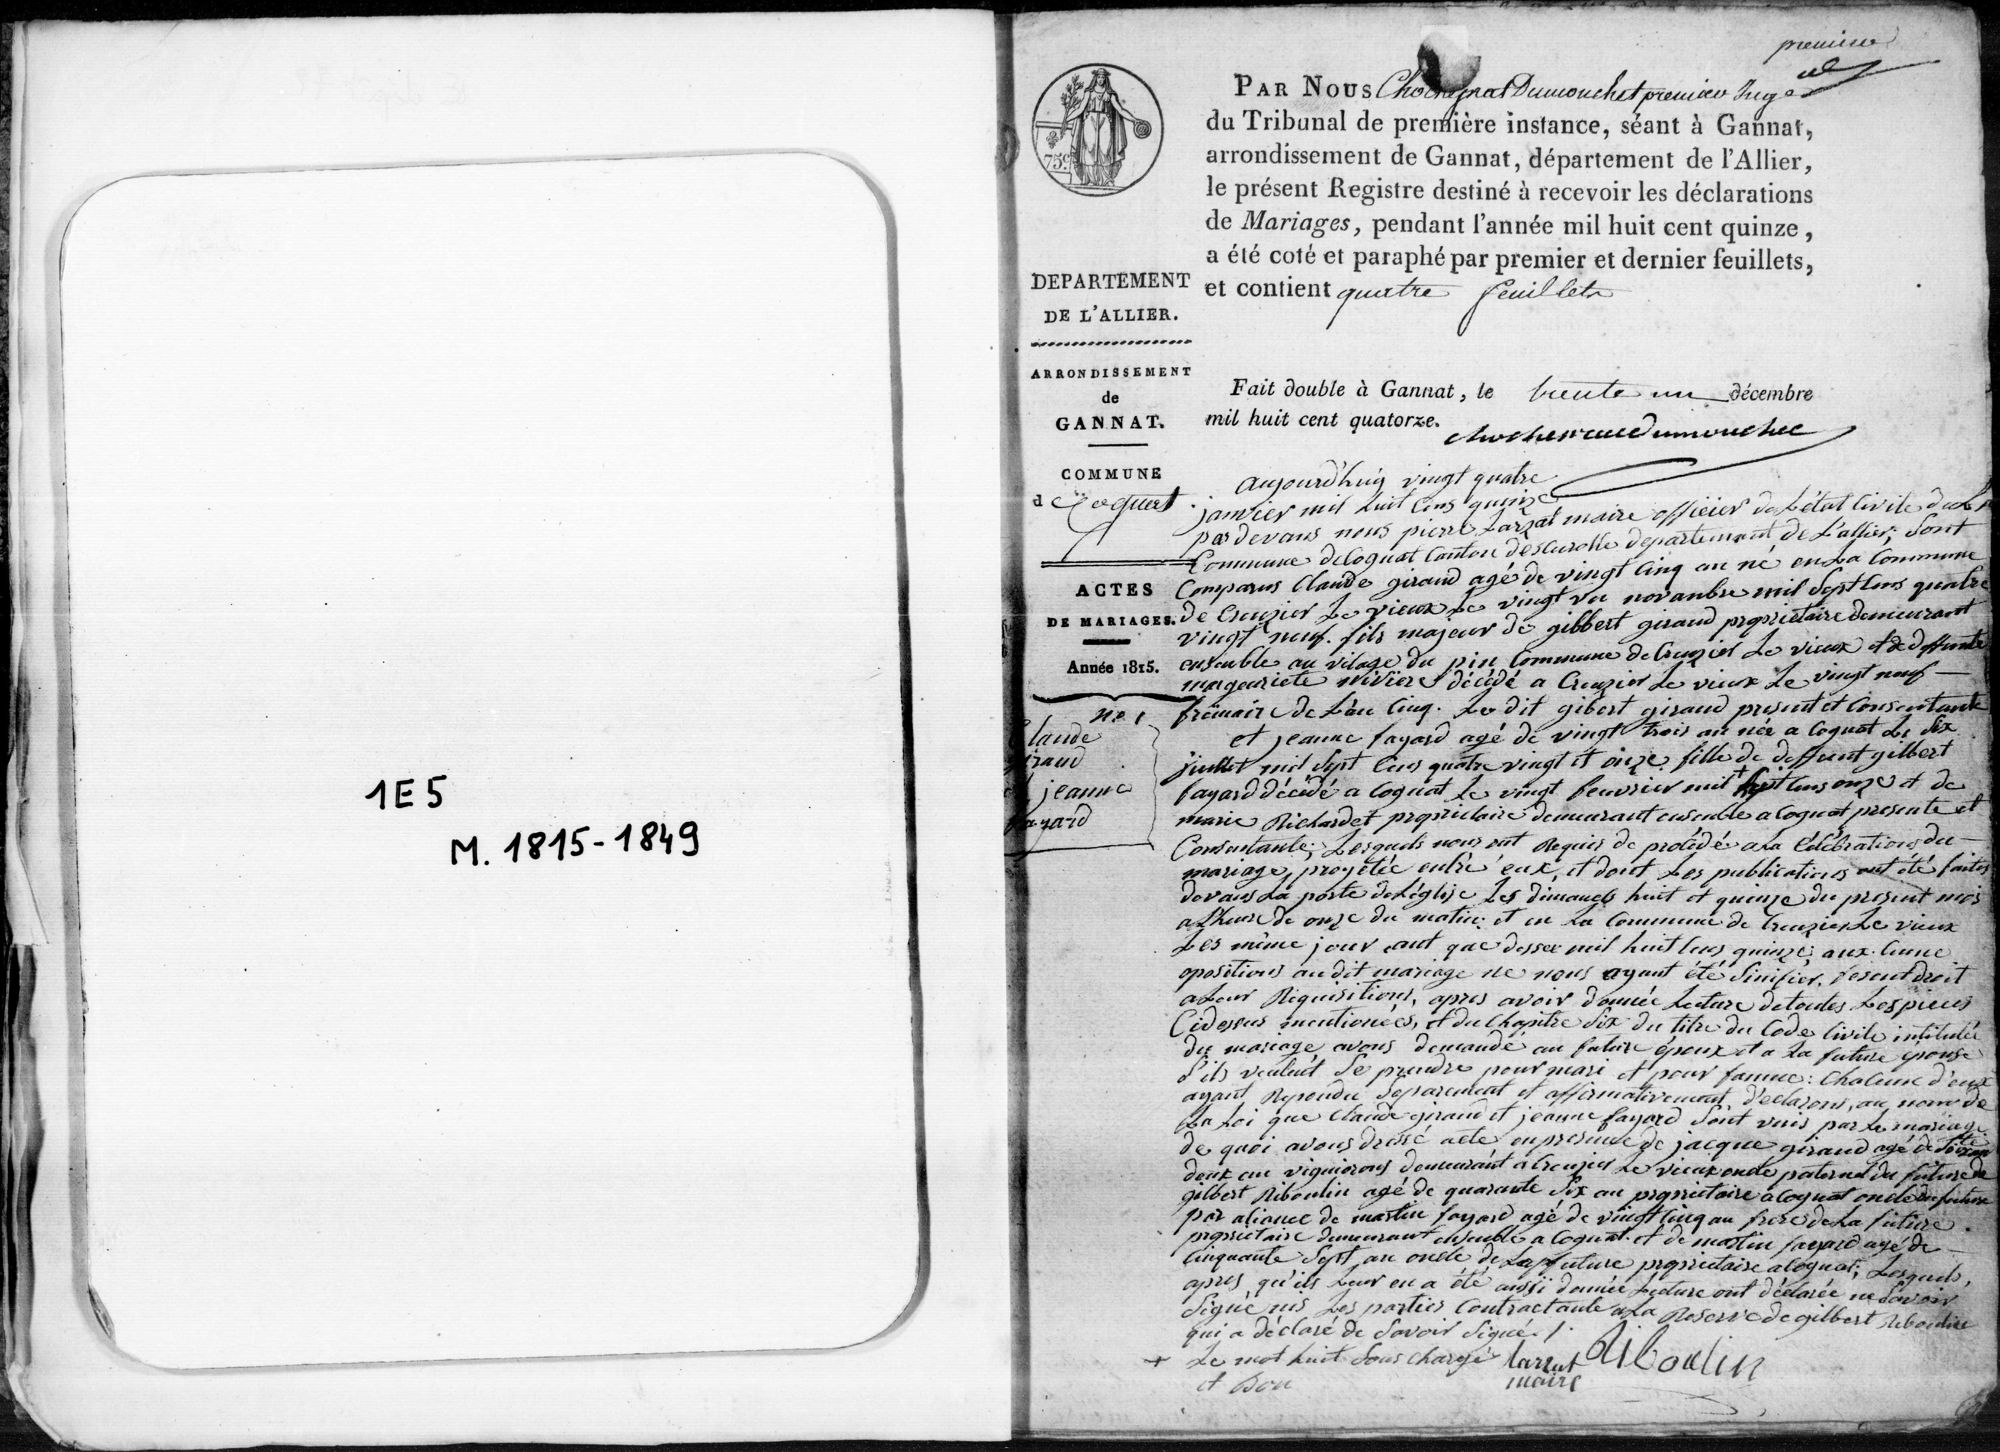 1E5
M. 1815-1849
premier
75c
PAR NOUS Chocheprat Dumouchet premier Juge
du Tribunal de première instance, séant à Gannat,
arrondissement de Gannat, département de l'Allier,
le présent Registre destiné à recevoir les déclarations
de Mariages, pendant l'année mil huit cent quinze,
a été coté et paraphé par premier et dernier feuillets,
et contient quatre feuillets
Fait double à Gannat, le trente un décembre
mil huit cent quatorze.
DEPARTEMENT
DE L'ALLIER.
ARRONDISSEMENT
de
GANNAT.
COMMUNE
de Cognat
ACTES
DE MARIAGES.
Année 1815.
no 1
Claude
giraud
et jeanne
fayard
aujourd'huy vingt quatre
janvier mil huit cens quinze
par devans nous pierre Larzat maire officier de Létat Civile de La
Commune de Cognat Canton descurolle departement de L'allier, Sont
Comparus Claude giraud agé de vingt Cinq an né en La Commune
de Creuzier Le vieux Le vingt un novanbre mil Sept Cens quatre
vingt neuf. fils majeur de gilbert giraud propriétaire demeurant
ensemble au vilage du pin Commune de Creuzier Le vieux et de deffunte
margeuriete rivière décédé a Creuzier Le vieux Le vingt neuf
frimaire de L'an Cinq. Le dit gibert giraud present et Consentante
et jeanne fayard agé de vingt trois an née a Cognat Le Six
juillet mil Sept Cens quatre vingt et onze fille de deffunt gilbert
fayard décédé a Cognat Le vingt feuvrier mil + huit Cens onze et de
marie Richardet propriétaire demeurant ensemble a Cognat presente et
Consentante; Lesquels nous ont Requis de procédé a La Célébration du
mariage projetée entre eux, et dont Les publications ont été faites
devans La porte de Léglise Les dimanches huit et quinze du present mois
a Lheure de onze du matin; et en La Commune de Creuzier Le vieux
Les même jour ant que dessee mil huit Cens quinze; aux. Cune
opositions audit mariage ne nous ayant été Sinifier. fesent droit
a Leur Réquisitions, apres avoir donnée Lecture de toutes Les pieces
Cidessus mentionées, et du Chapitre Six du titre du Code Civile intitulée
du mariage avons demandé au future époux et a La future épouse
S'ils veulent Se prendre pour mari et pour famme: Chaleune d'eux
ayant Repondu Separement et affirmativement, déclarons, au nom de
La Loi que Claude giraud et jeanne fayard Sont unis par Le mariage
de quoi avons dressé acte en presence de jacque giraud agé de Soixante
deux an vignierons demeurant a Creuzier Le vieux oncle paternel du future de
gilbert Riboulin agé de quarante Six an propriétaire a Cognat oncle du future
par aliance de martin fayard agé de vingt Cinq an frere de La future
propriétaire demeurant ensemble a Cognat. et de martin fayard agé de
Cinquante Sept an oncle de La future propriétaire a Cognat; Lesquels,
apres qu'ils Leur en a été aussi donnée Lecture ont déclarée ne Savoir
Signé nis Les parties Contractante a La Reserve de gilbert Riboulin
qui a déclaré de Savoir Signé./.
+ Le mot huit Sous chargé
et Bon
Larzat
maire
Riboulin